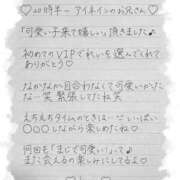 ♡20時半〜アイネインのお兄さん♡
「可愛い子来て嬉しい」頂きました♪
初めてのVIPでれいを選んでくれて
ありがとう♡
なかなか目合わなくて頂い可愛いかった
な〜笑 緊張してたね笑
えちえちタイムのときは…いっぱい
○○○しながら楽しめたね♡
何回も「まじで可愛い」って♪
また会えるの楽しみにしてるよ♡